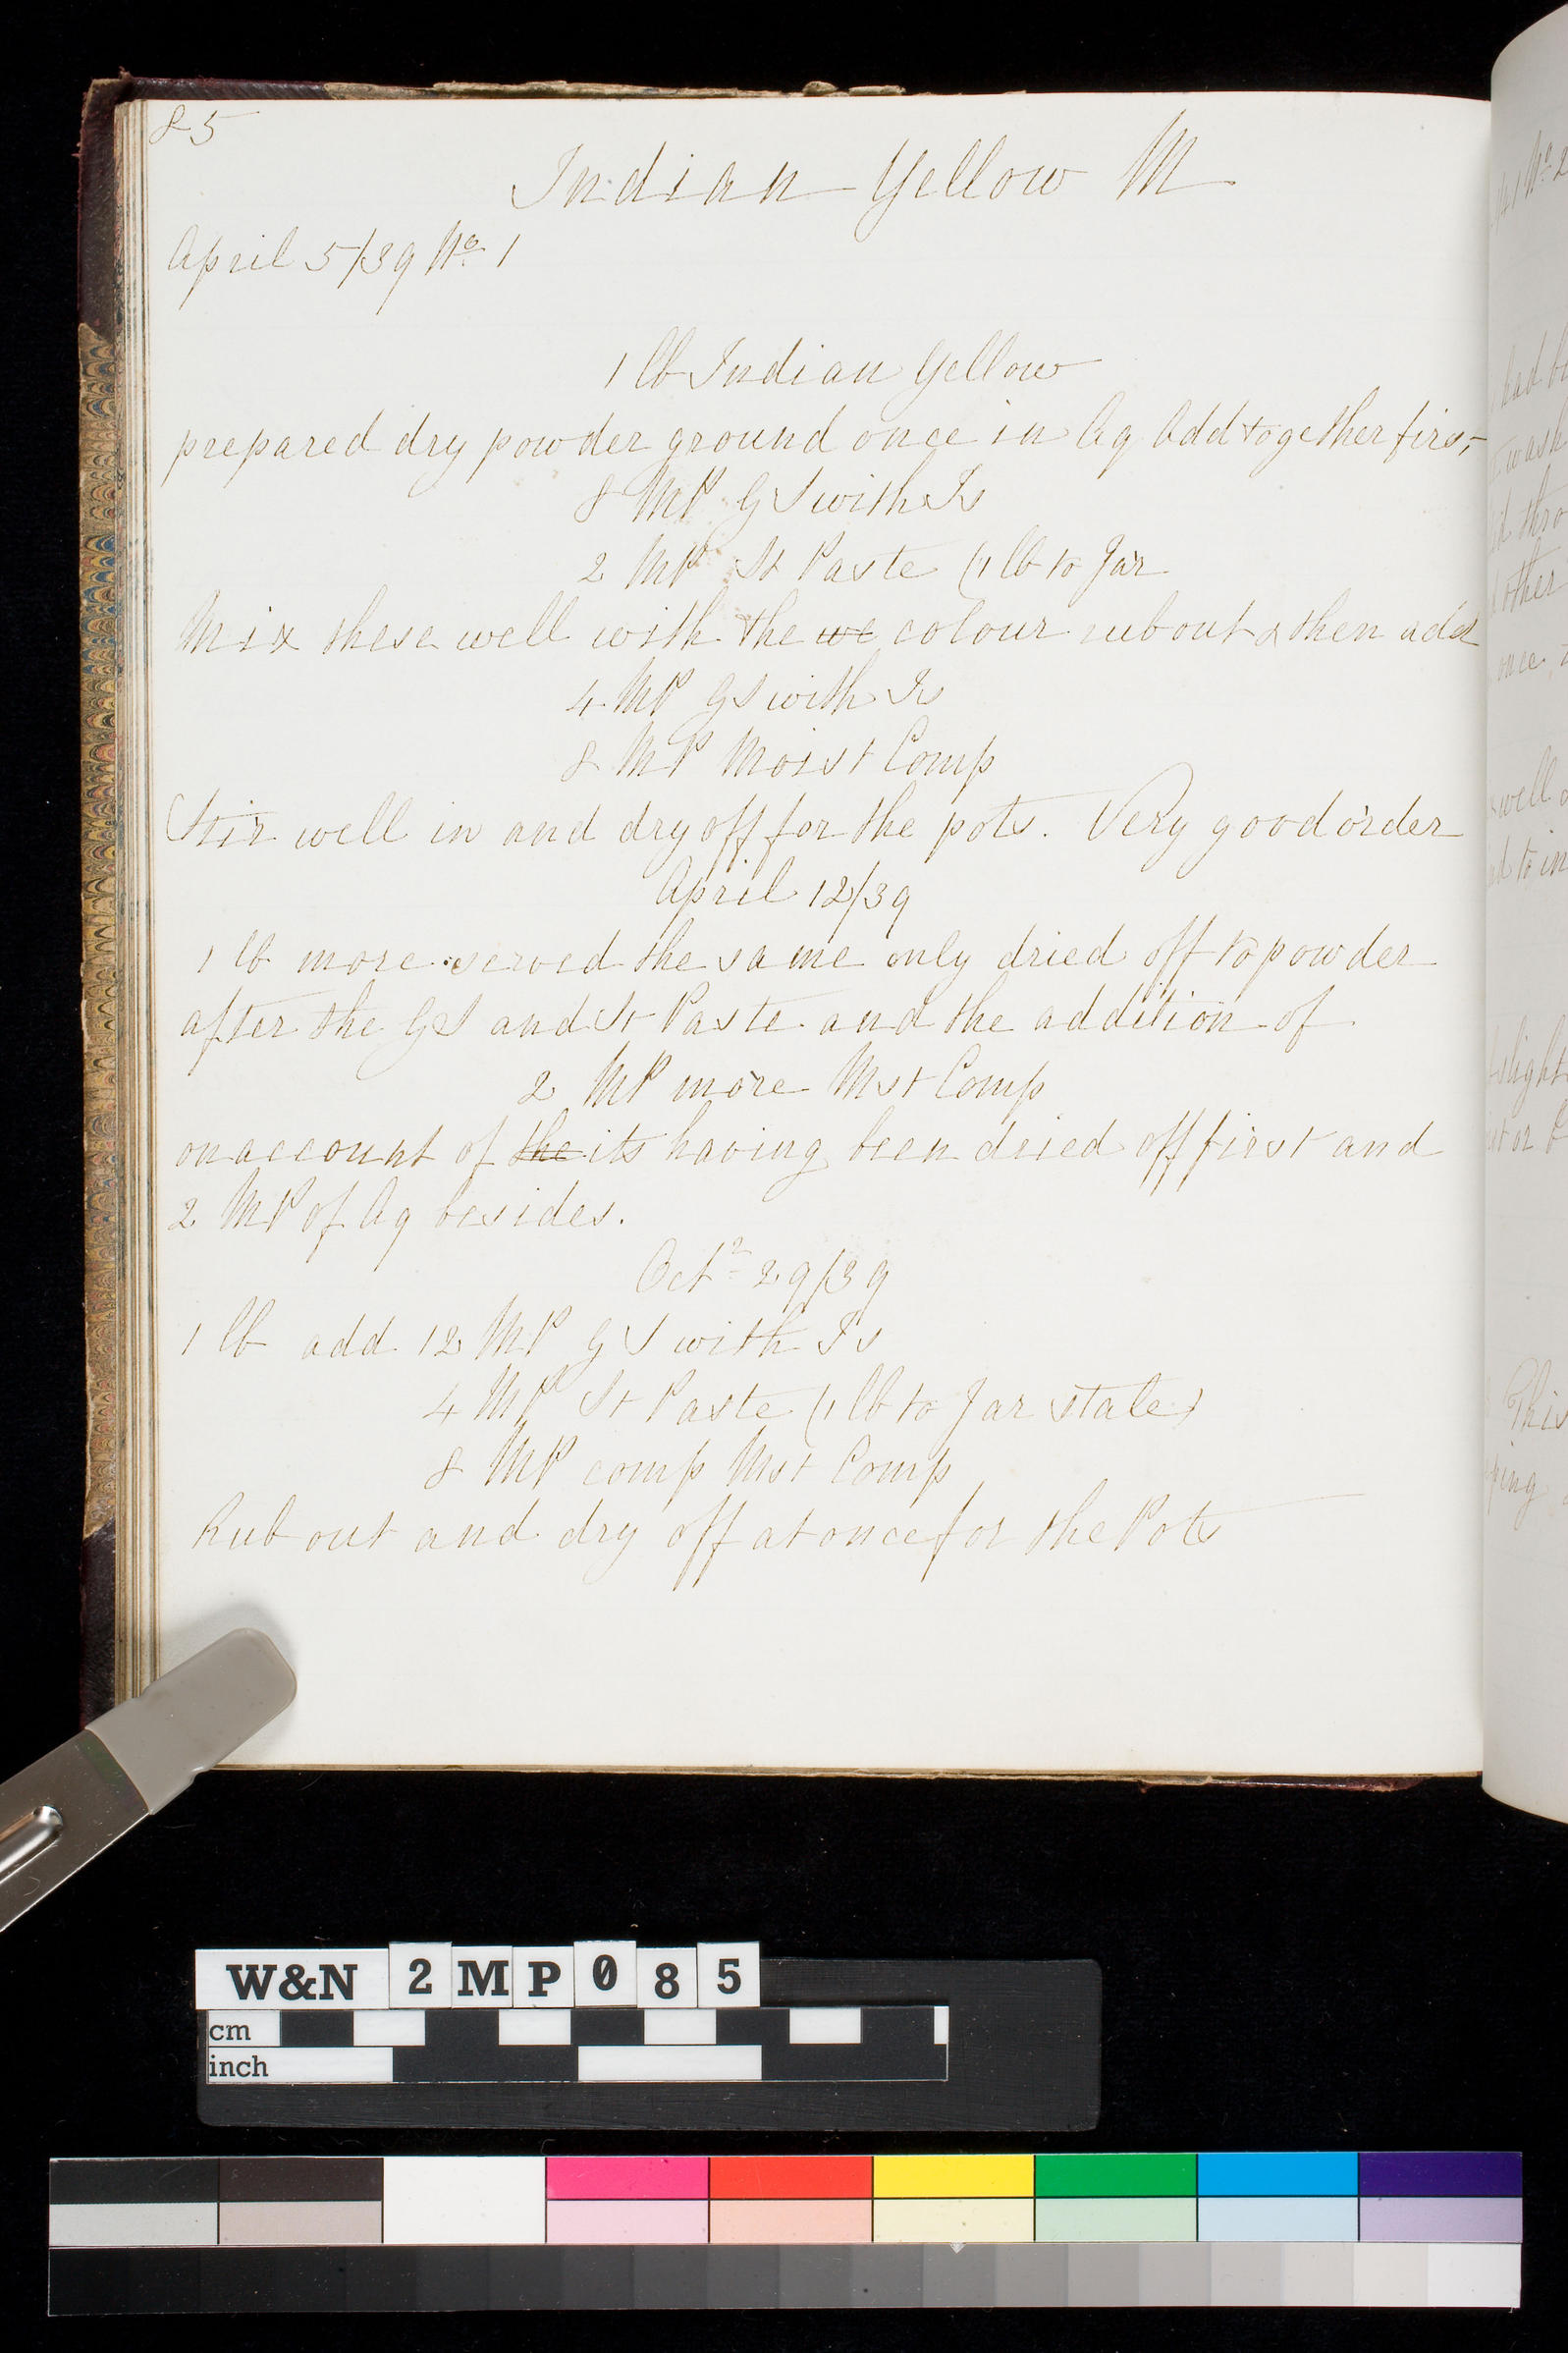 85
Indian Yellow M
April 5/39 No. 1
1 lb Indian Yellow
prepared dry powder ground once in Aq Add together first
8 MP GS with Is
2 MP St Paste (1 lb to Jar
Mix these well with the we colour rub out & then add
4 MP GS with Is
8 MP Moist Comp
Stir well in and dry off for the pots. Very good order
April 12/39
1 lb more served the same only dried off to powder
after the GS and St Paste and the addition of
2 MP more Mst Comp
on account of the its having been dried off first and
2 MP of Aq besides.
Octr 29/39
1 lb add 12 MP GS with Is
4 MP St Paste (1 lb to Jar stale)
8 MP comp Mst Comp
Rub out and dry off at once for the Pots
W&N 2MP085
cm
inch